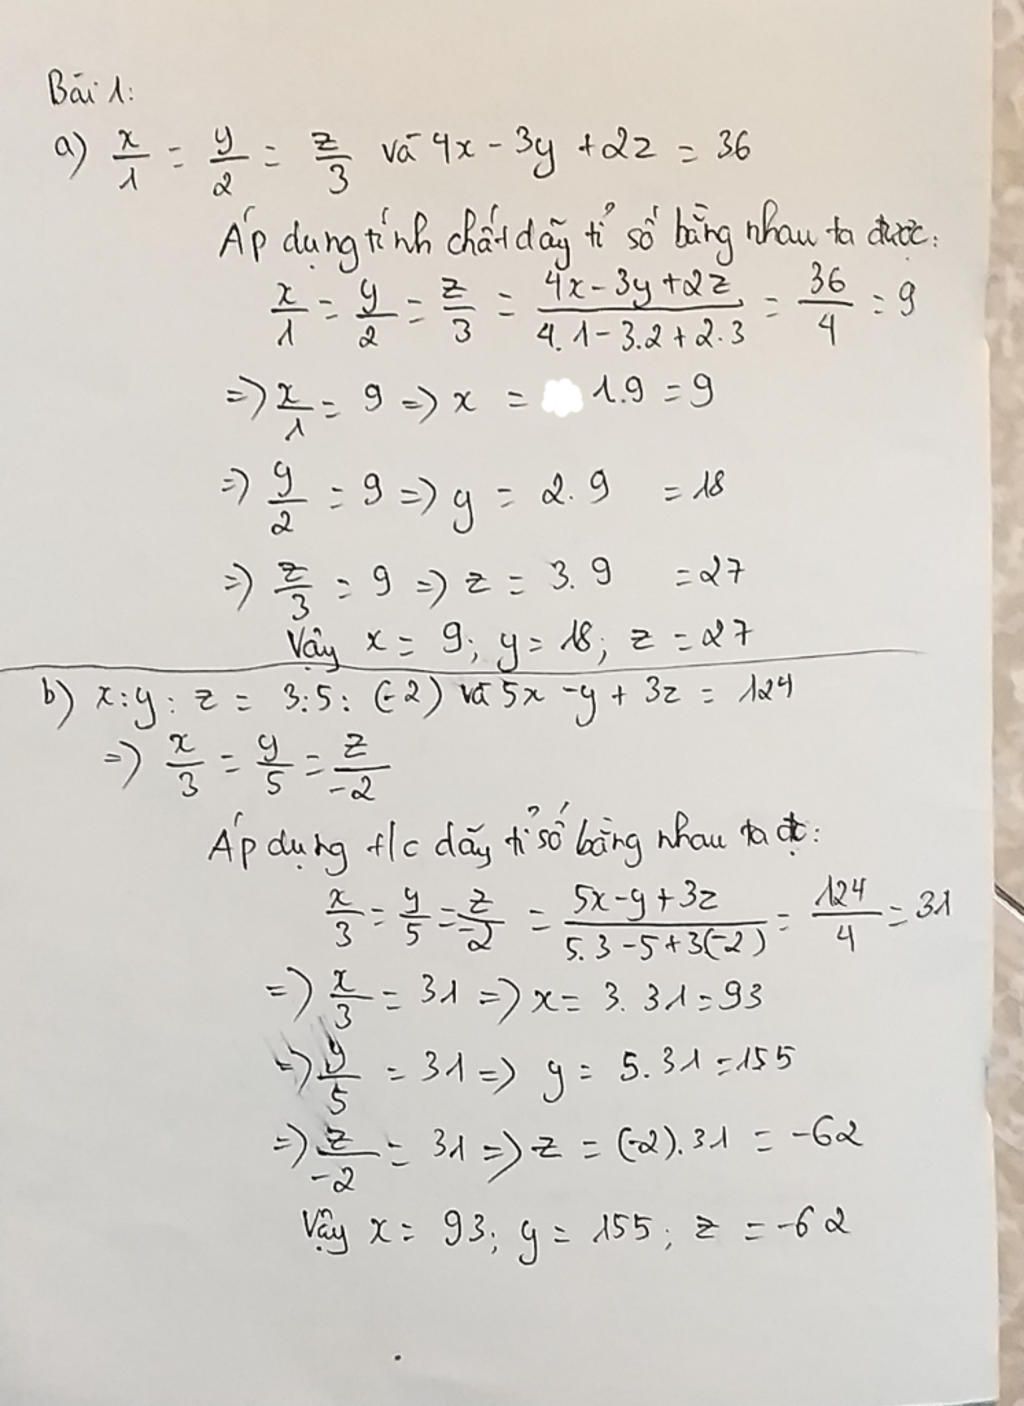 Bài 1:
a) x/1 = y/2 = z/3 và 4x - 3y + 2z = 36
Áp dụng tính chất dãy tỉ số bằng nhau ta được:
x/1 = y/2 = z/3 = (4x - 3y + 2z)/(4.1 - 3.2 + 2.3) = 36/4 = 9
=> x/1 = 9 => x = 1.9 = 9
=> y/2 = 9 => y = 2.9 = 18
=> z/3 = 9 => z = 3.9 = 27
Vậy x = 9; y = 18; z = 27
b) x:y:z = 3:5:(-2) và 5x - y + 3z = 124
=> x/3 = y/5 = z/-2
Áp dụng t/c dãy tỉ số bằng nhau ta đc:
x/3 = y/5 = z/-2 = (5x - y + 3z)/(5.3 - 5 + 3(-2)) = 124/4 = 31
=> x/3 = 31 => x = 3.31 = 93
=> y/5 = 31 => y = 5.31 = 155
=> z/-2 = 31 => z = (-2).31 = -62
Vậy x = 93; y = 155; z = -62